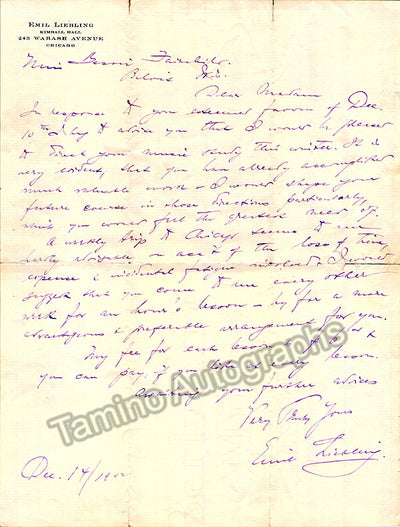 EMIL LIEBLING
KIMBALL HALL
243 WABASH AVENUE
CHICAGO
Miss Bessie Fairchild,
Beloit Wis.
Dear Madam
In response to your esteemed favor of Dec.
10th I beg to advise you that I would be pleased
to direct your music study this winter. It is
very evident, that you have already accomplished
much valuable work & I would shape your
future course in those directions particularly,
which you would feel the greatest need of.
A weekly trip to Chicago seems to me
hardly advisable, on acc't of the loss of time,
expense & incidental fatigue involved & I would
suggest that you come to me every other
week for an hour's lesson - by far a more
advantageous & preferable arrangement for you.
My fee for each lesson is
you can pay, if you like at every lesson.
Awaiting your further advices
Very Truly Yours
Emil Liebling.
Dec. 14/
Tamino Autographs